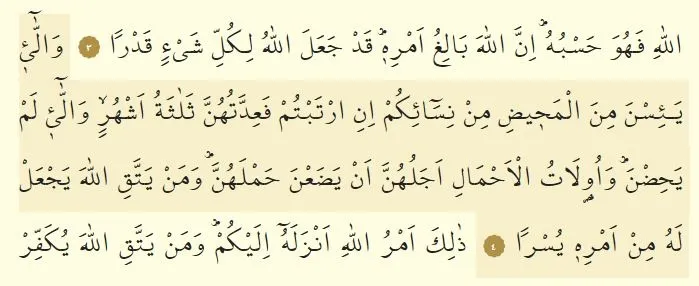 اللّٰهِ فَهُوَ حَسْبُهُۜ اِنَّ اللّٰهَ بَالِغُ اَمْرِه۪ۜ قَدْ جَعَلَ اللّٰهُ لِكُلِّ شَيْءٍ قَدْرًا ﴿٣﴾ وَالّٰٓـ۪ٔي
يَـئِسْنَ مِنَ الْمَح۪يضِ مِنْ نِسَٓائِكُمْ اِنِ ارْتَبْتُمْ فَعِدَّتُهُنَّ ثَلٰثَةُ اَشْهُرٍۙ وَالّٰٓـ۪ٔي لَمْ
يَحِضْنَۜ وَاُو۬لَاتُ الْاَحْمَالِ اَجَلُهُنَّ اَنْ يَضَعْنَ حَمْلَهُنَّۜ وَمَنْ يَتَّقِ اللّٰهَ يَجْعَلْ
لَهُ مِنْ اَمْرِه۪ يُسْرًا ﴿٤﴾ ذٰلِكَ اَمْرُ اللّٰهِ اَنْزَلَهُٓ اِلَيْكُمْۜ وَمَنْ يَتَّقِ اللّٰهَ يُكَفِّرْ